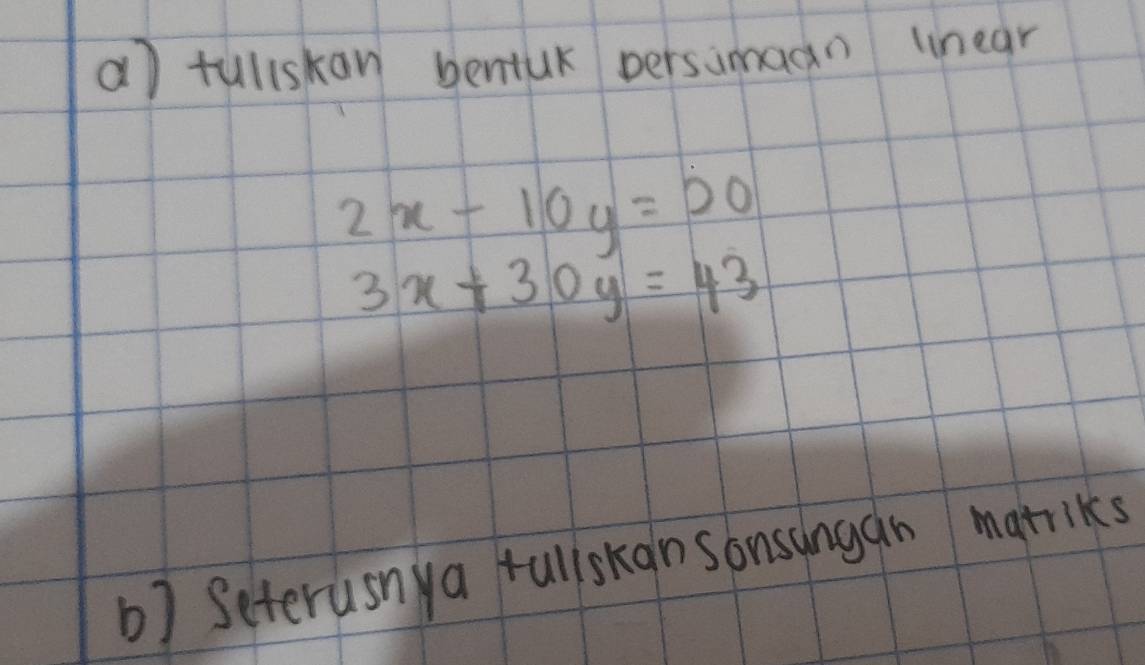 a) tuliskan bentuk persamaan linear
2x - 10y = 20
3x + 30y = 43
b) Seterusnya tuliskan sonsangan matriks